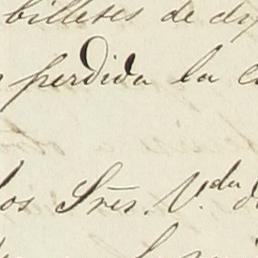 billetes de
perdida la
los Sres. V.da